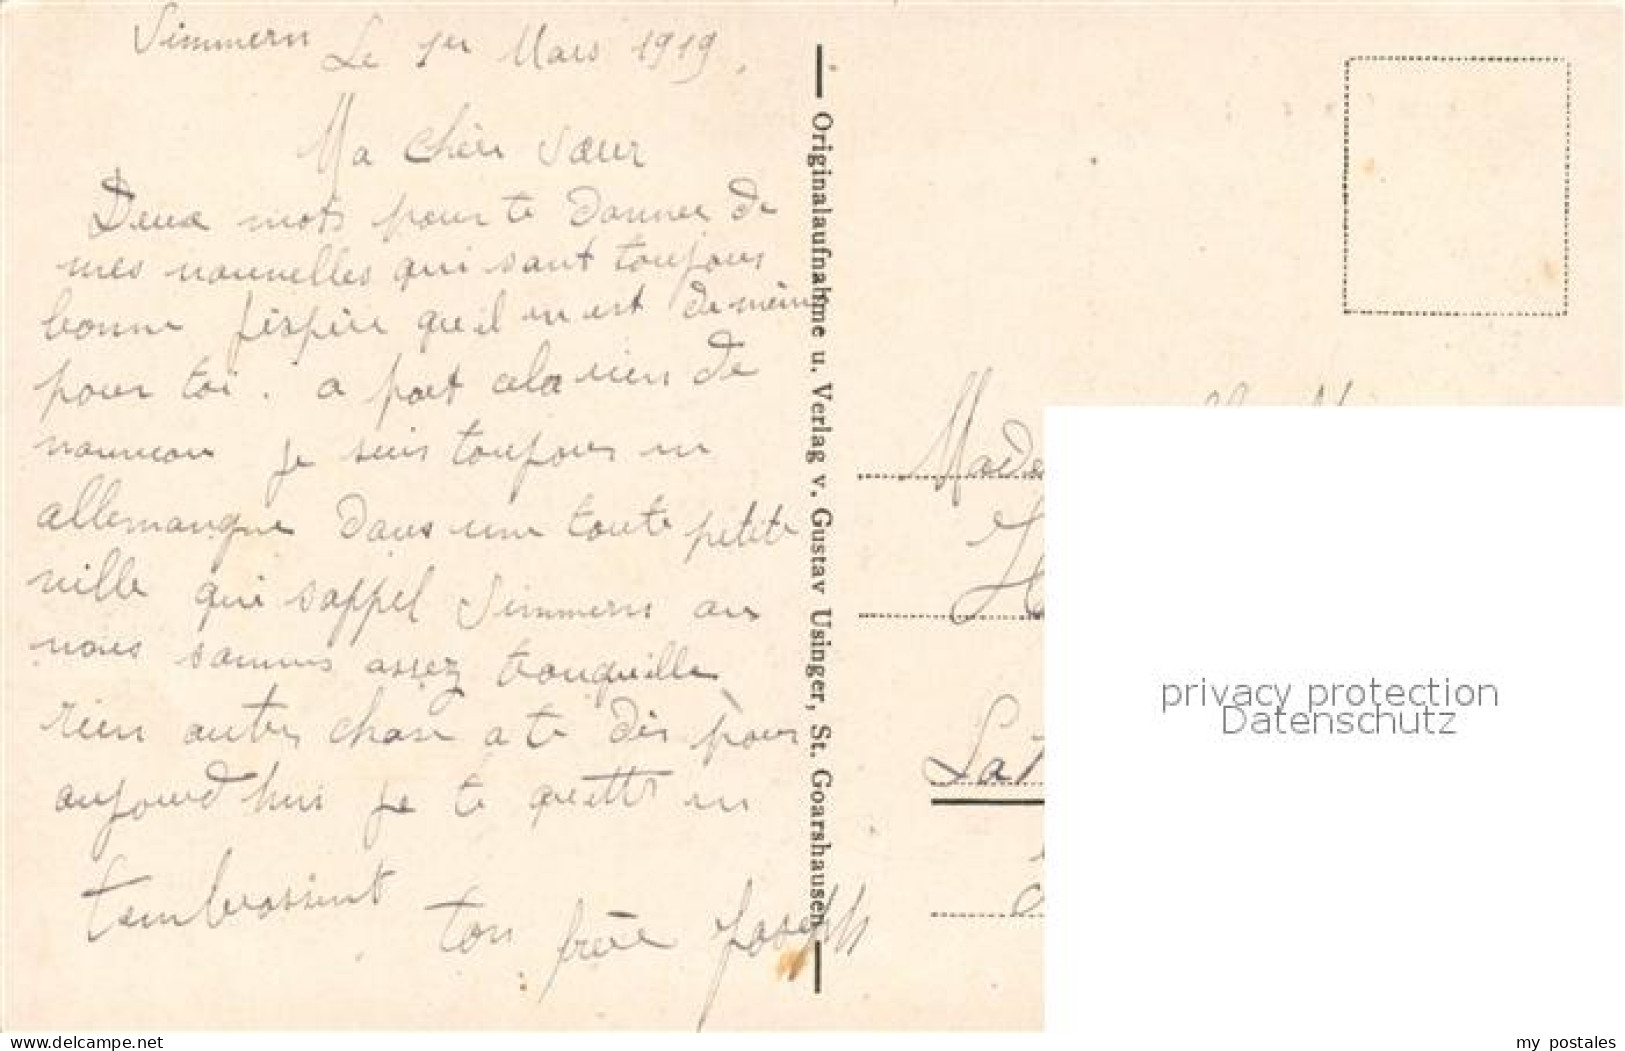 Simmern Le 1er Mars 1919
Ma chèr sœur
Deux mots pour te donner de
mes nouvelles qui sont toujours
bonne j'éspère qu'il en est de meme
pour toi. a part cela rien de
nouveau je suis toujours en
allemangne dans une toute petite
ville qui sappel Simmern ou
nous sommes assez tranquille
rien autres chose a te dis pour
aujourd'hui je te quitte en
tembrassent ton frère Joseph
Originalaufnahme u. Verlag v. Gustav Usinger, St. Goarshausen
Made
La
privacy protection
Datenschutz
my_postales